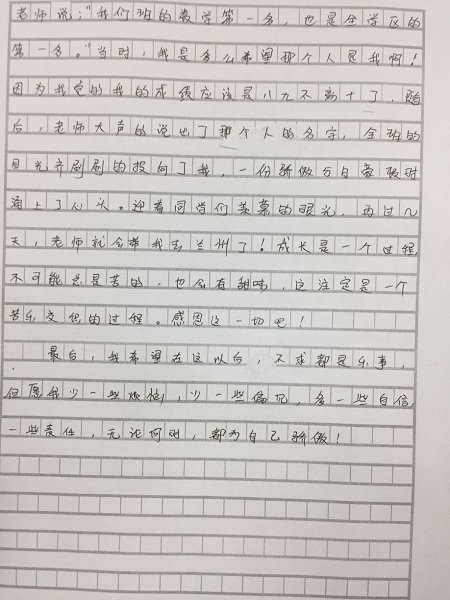 老师说："我们班的数学第一名，也是全学区的
第一名。"当时，我是多么希望那个人是我啊！
因为我觉的我的成绩应该是八九不离十了，随
后，老师大声的说出了那个人的名字，全班的
目光齐刷刷的投向了我，一份骄傲与自豪顿时
涌上了心头。迎着同学们羡慕的眼光，再过几
天，老师就会带我去兰州了！成长是一个过程，
不可能总是苦的，也会有甜味，这注定是一个
苦乐交织的过程。感恩这一切吧！
最后，我希望在这以后，不求都是乐事，
但愿我少一些烦恼，少一些偏见，多一些自信，
一些责任，无论何时，都为自己骄傲！